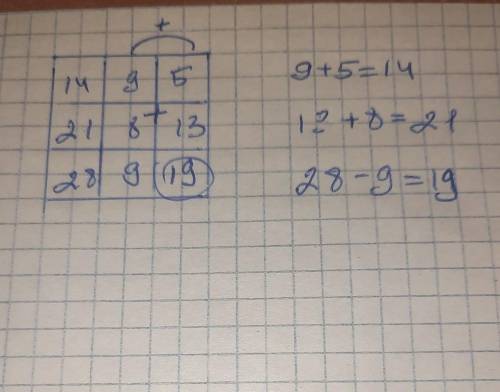 +
14 9 5
21 8 + 13
28 9 19
9+5=14
13 + 8 = 21
28-9=19